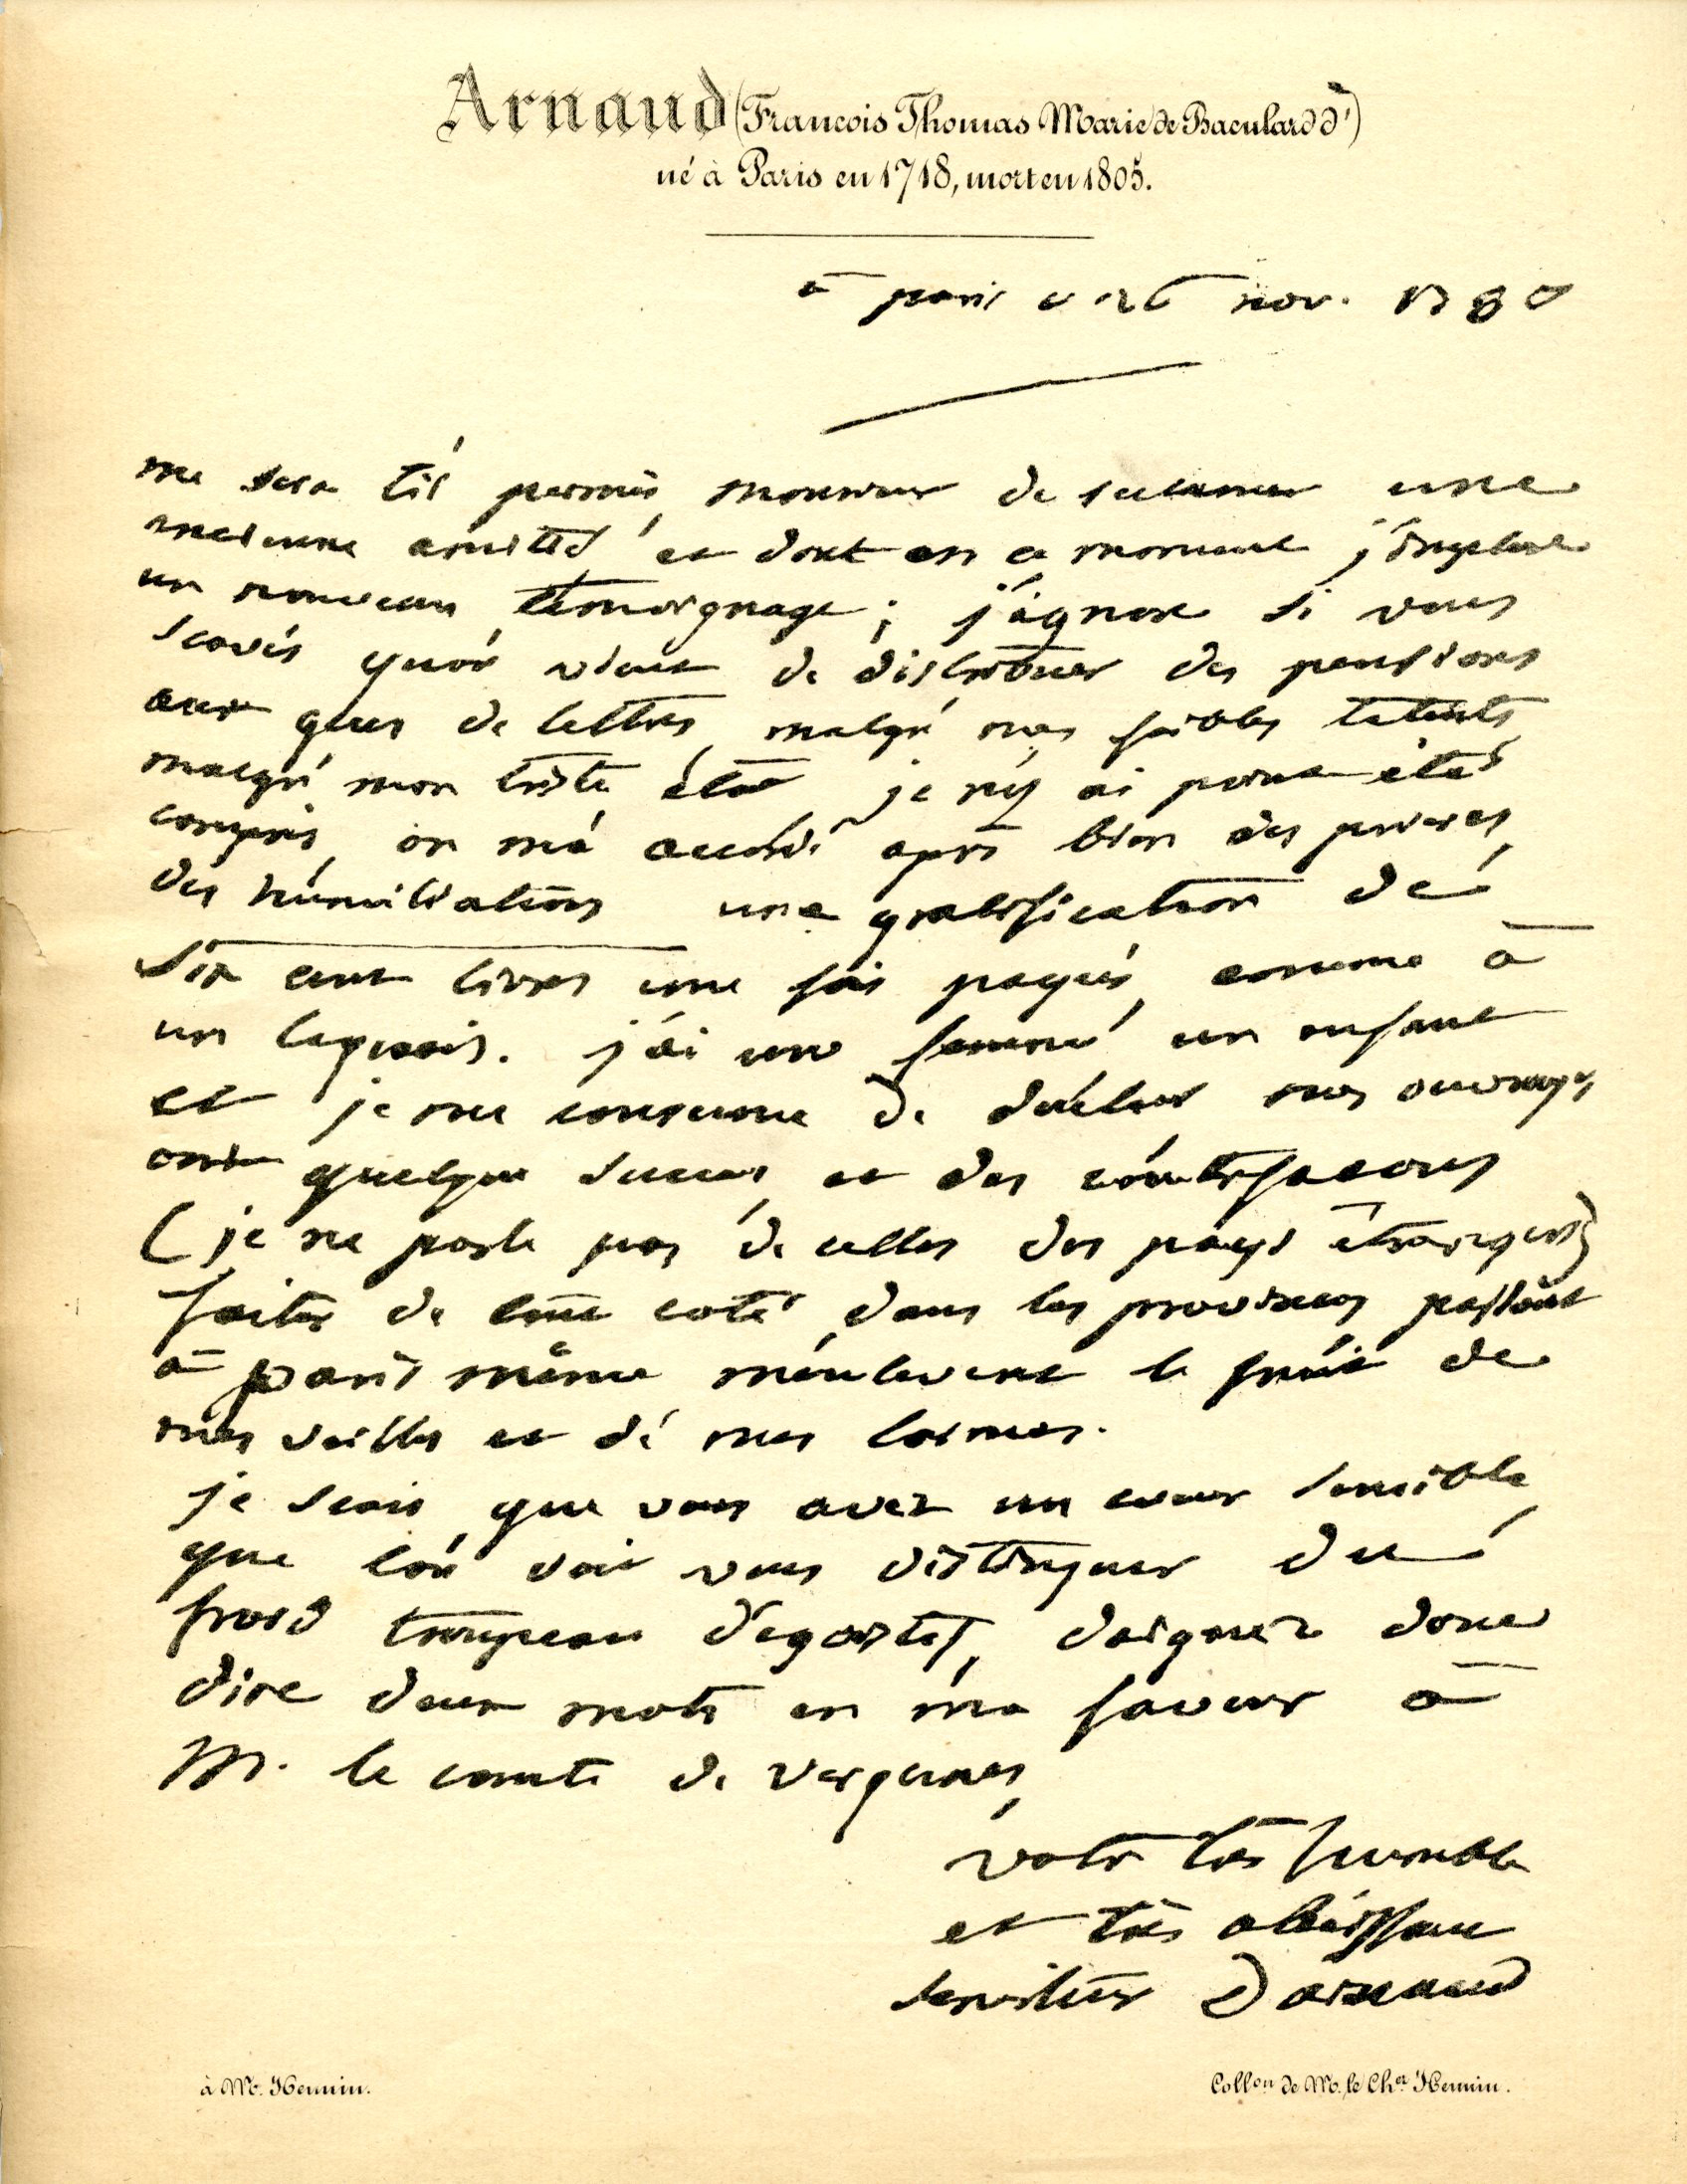 Arnaud (Francois Thomas Marie de Baculard d')
né à Paris en 1718, mort en 1805.
à paris ce 26 nov. 178
me sera til permis, monsieur de reclamer une
ancienne amitié, et dont en ce moment j'implore
un nouveau temoignage; j'ignore si vous
scavés qu'on vient de distribuer des pensions
aux gens de lettres, malgré mes foibles talents,
malgré mon triste état, je n'y ai point été
compris, on m'a accordé après bien des prieres,
des humiliations une gratification de
six cent livres une fois payés, comme à
un laquais. j'ai une femme, un enfant
et je me consume de douleur, mes ouvrages
ont quelque succes, et des contrefacons
(je ne parle pas de celles des pays étrangers)
faites de tout coté, dans les provinces, partout
à paris même m'enlevent le fruit de
mes veilles et de mes larmes.
je scais que vous avez un cœur sensible,
que l'on doit vous distinguer du
froid troupeau d'egoistes, daignez donc
dire deux mots en ma faveur à
M. le comte de vergennes,
votre très humble
et très obeissant
serviteur D'arnaud
à M. Hennin.
Coll.on de M. le Ch.er Hennin.